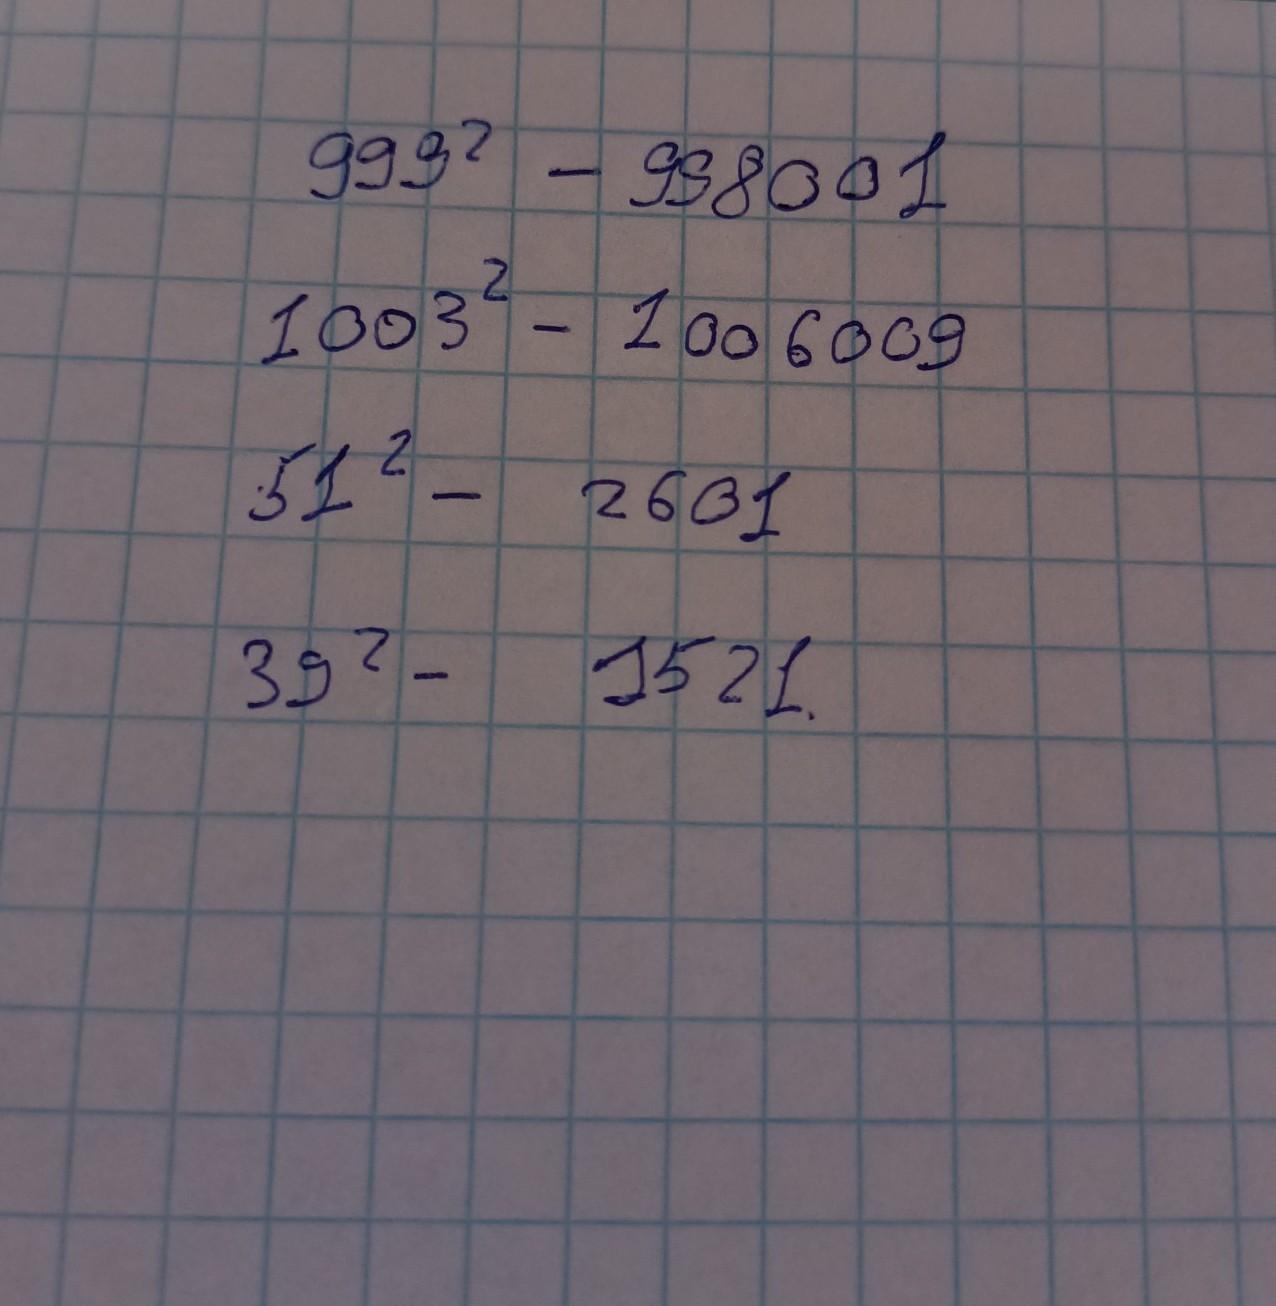 999² - 998001
1003² - 1006009
51² - 2601
39² - 1521.